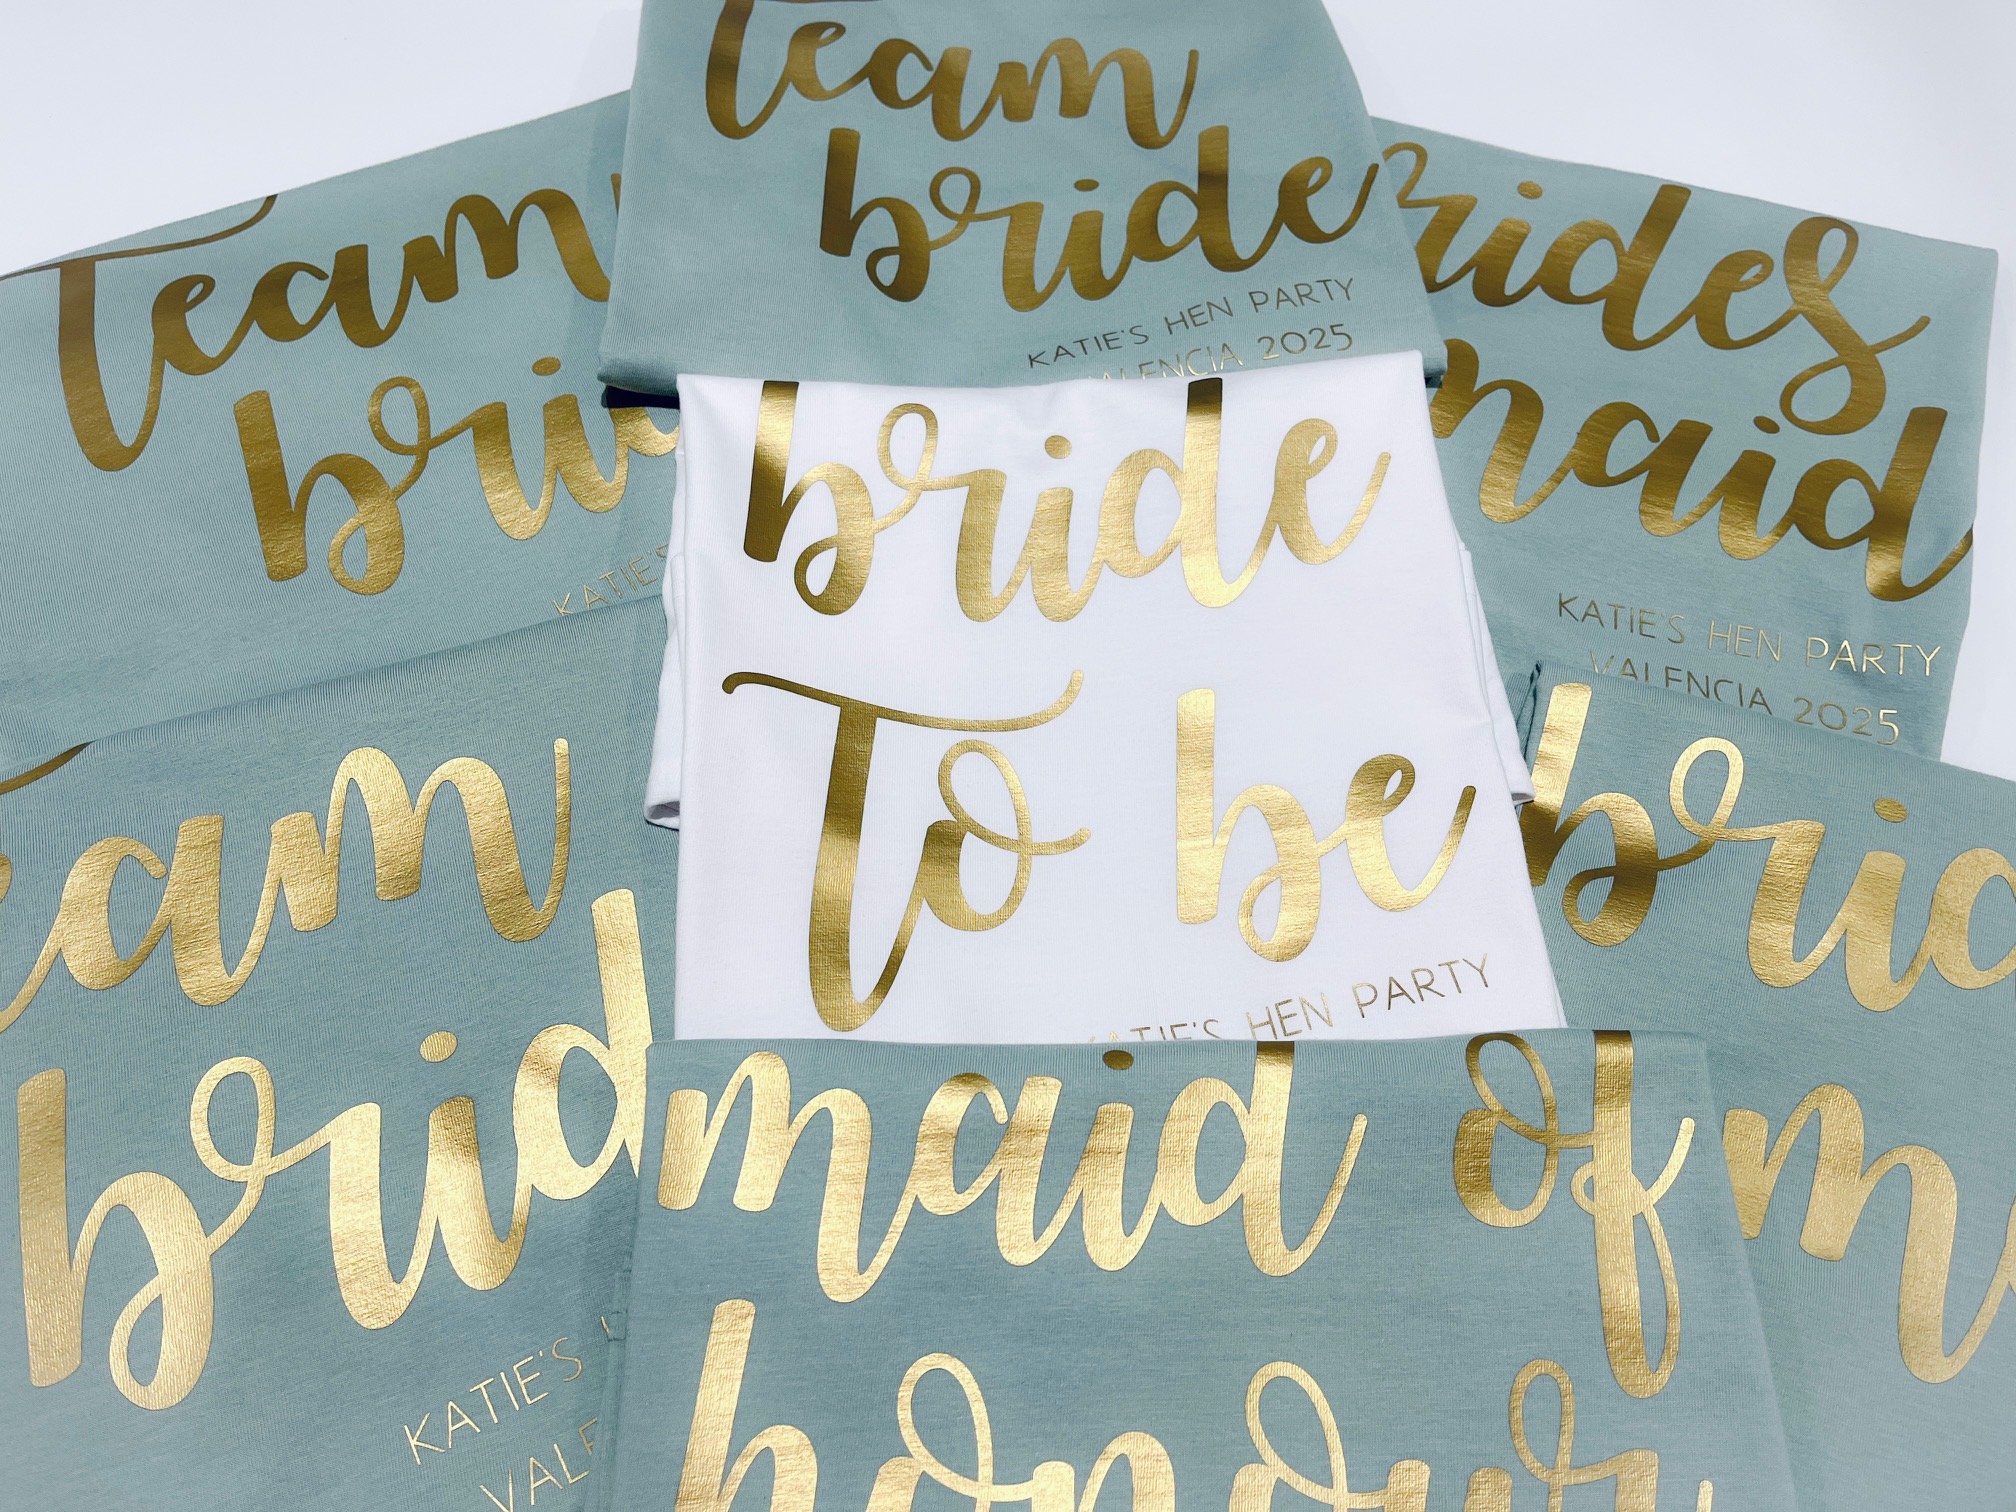 Team
bride
KATIE'S HEN PARTY
VALENCIA 2025
Team
KATIE'S
brides
maid
KATIE'S HEN PARTY
VALENCIA 2025
bride
To be
KATIE'S HEN PARTY
KATIE'S
maid of
honour